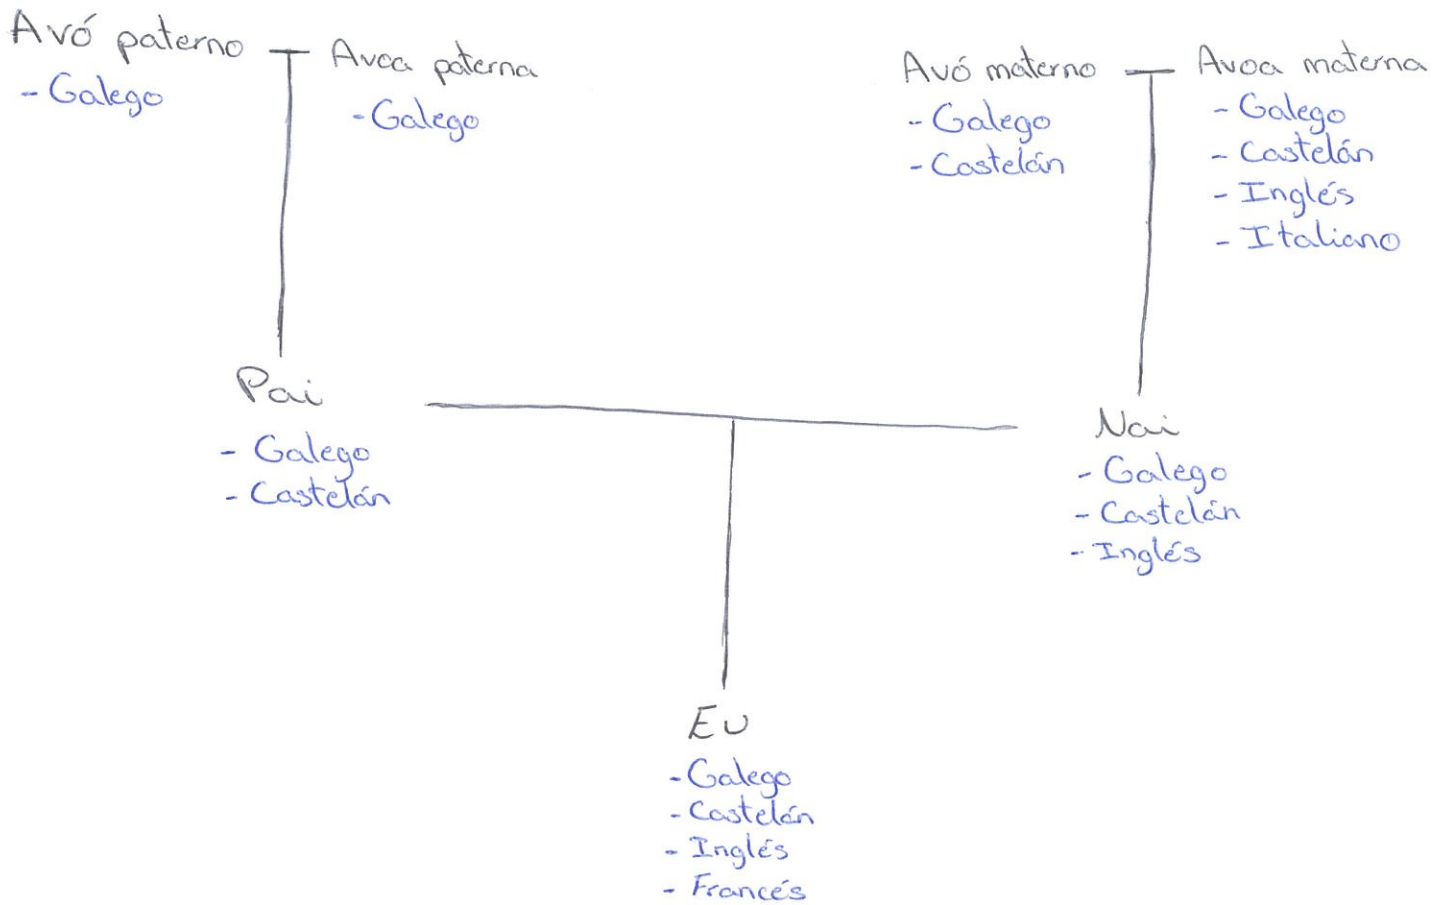 Avó paterno
- Galego
Avoa paterna
- Galego
Avó materno
- Galego
- Castelán
Avoa materna
- Galego
- Castelán
- Inglés
- Italiano
Pai
- Galego
- Castelán
Nai
- Galego
- Castelán
- Inglés
Eu
- Galego
- Castelán
- Inglés
- Francés